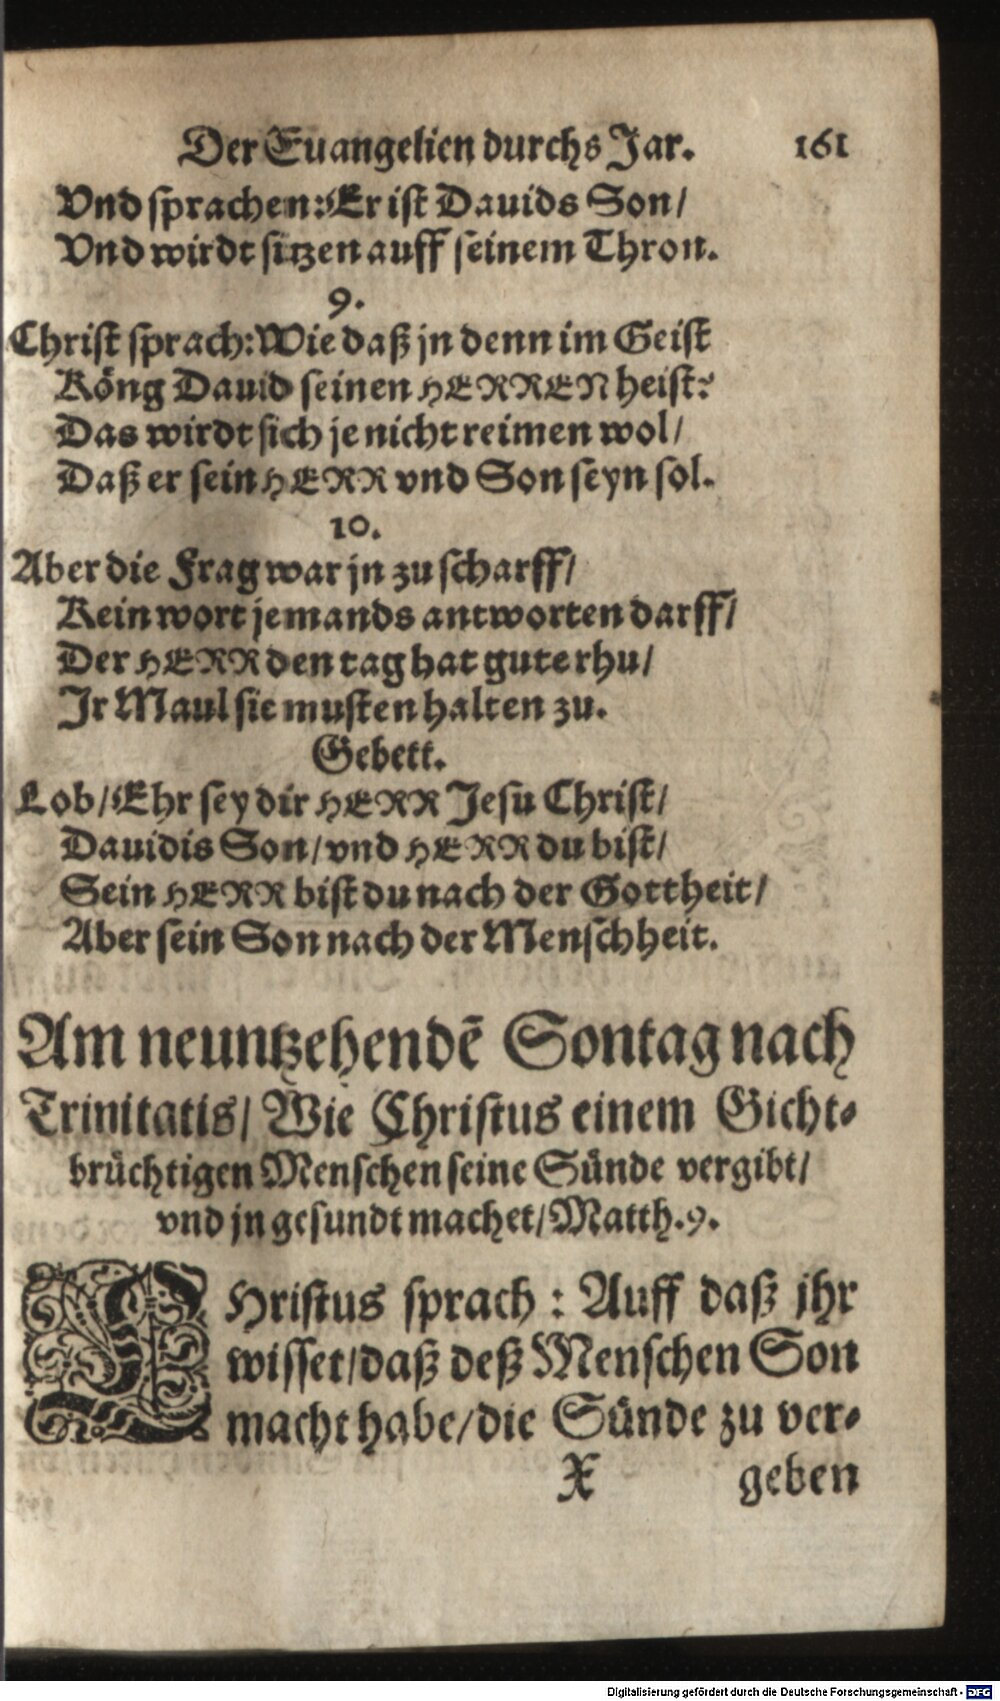 Der Euangelien durchs Jar. 161
Vnd sprachen: Er ist Dauids Son/
Vnd wirdt sitzen auff seinem Thron.
9.
Christ sprach: Wie daß jn denn im Geist
Köng Dauid seinen HERREN heist?
Das wirdt sich je nicht reimen wol/
Daß er sein HERR vnd Son seyn sol.
10.
Aber die Frag war jn zu scharff/
Kein wort jemands antworten darff/
Der HERR den tag hat gute rhu/
Jr Maul sie musten halten zu.
Gebett.
Lob/ Ehr sey dir HERR Jesu Christ/
Dauidis Son/ vnd HERR du bist/
Sein HERR bist du nach der Gottheit/
Aber sein Son nach der Menschheit.
Am neuntzehendē Sontag nach
Trinitatis/ Wie Christus einem Gicht-
brüchtigen Menschen seine Sünde vergibt/
vnd jn gesundt machet/ Matth. 9.
CHristus sprach : Auff daß jhr
wisset/ daß deß Menschen Son
macht habe/ die Sünde zu ver-
X geben
Digitalisierung gefördert durch die Deutsche Forschungsgemeinschaft - DFG